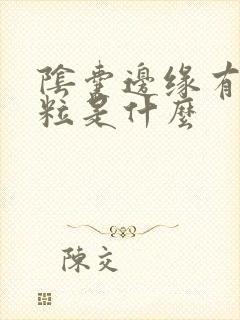 陰囊邊緣有
粒是什麼
陳交